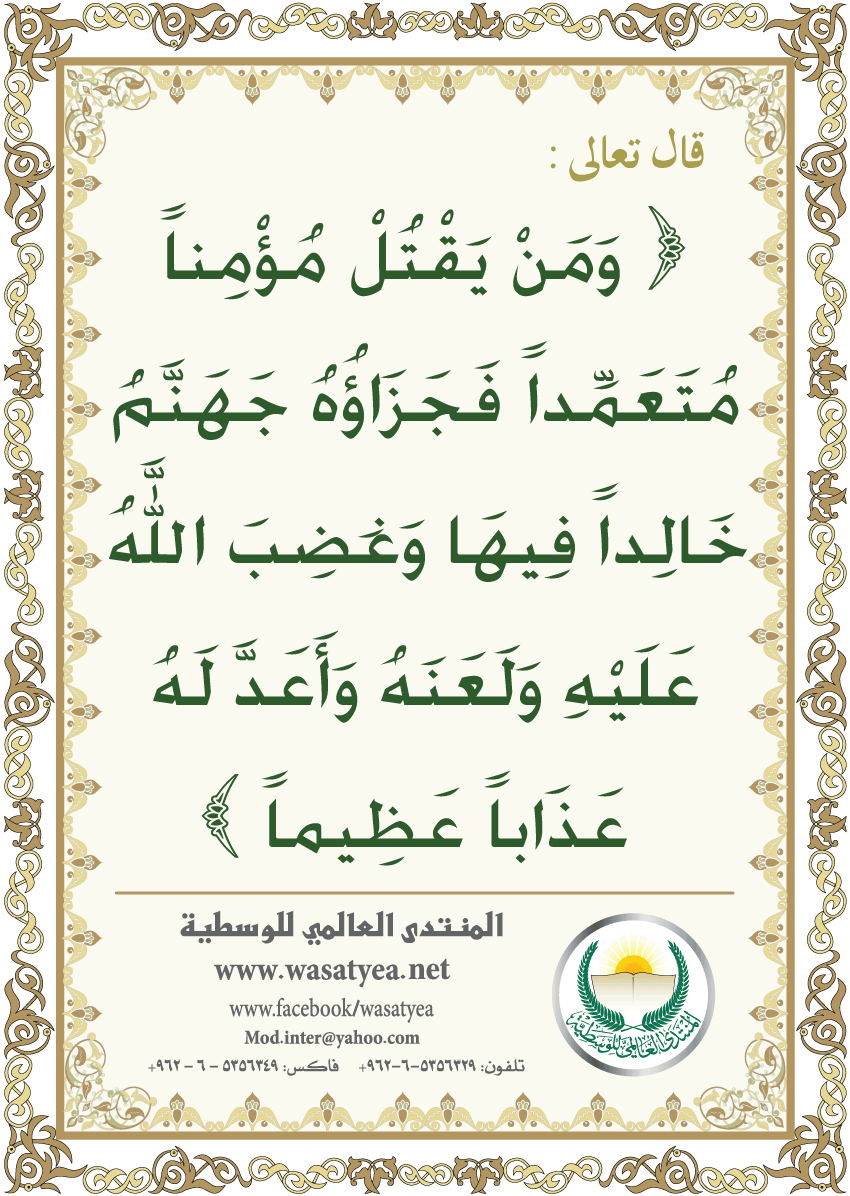 قال تعالى :
﴿ وَمَنْ يَقْتُلْ مُؤْمِناً
مُتَعَمِّداً فَجَزَاؤُهُ جَهَنَّمُ
خَالِداً فِيهَا وَغَضِبَ اللَّهُ
عَلَيْهِ وَلَعَنَهُ وَأَعَدَّ لَهُ
عَذَاباً عَظِيماً ﴾
المنتدى العالمي للوسطية
www.wasatyea.net
www.facebook/wasatyea
Mod.inter@yahoo.com
تلفون: ٥٣٥٦٣٢٩-٦-٩٦٢+ فاكس: ٥٣٥٦٣٤٩ - ٦ - ٩٦٢+
المنتدى العالمي للوسطية